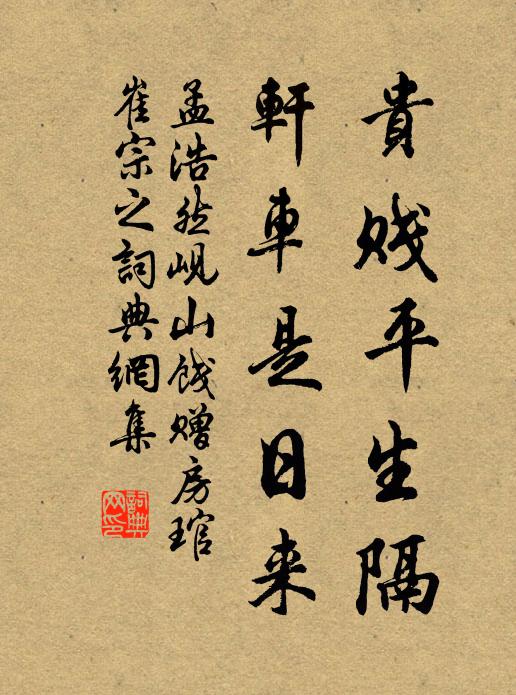 貴賤平生隔
軒車是日来
孟浩然峴山餞赠房琯
崔宗之詞典網集
詞典網印